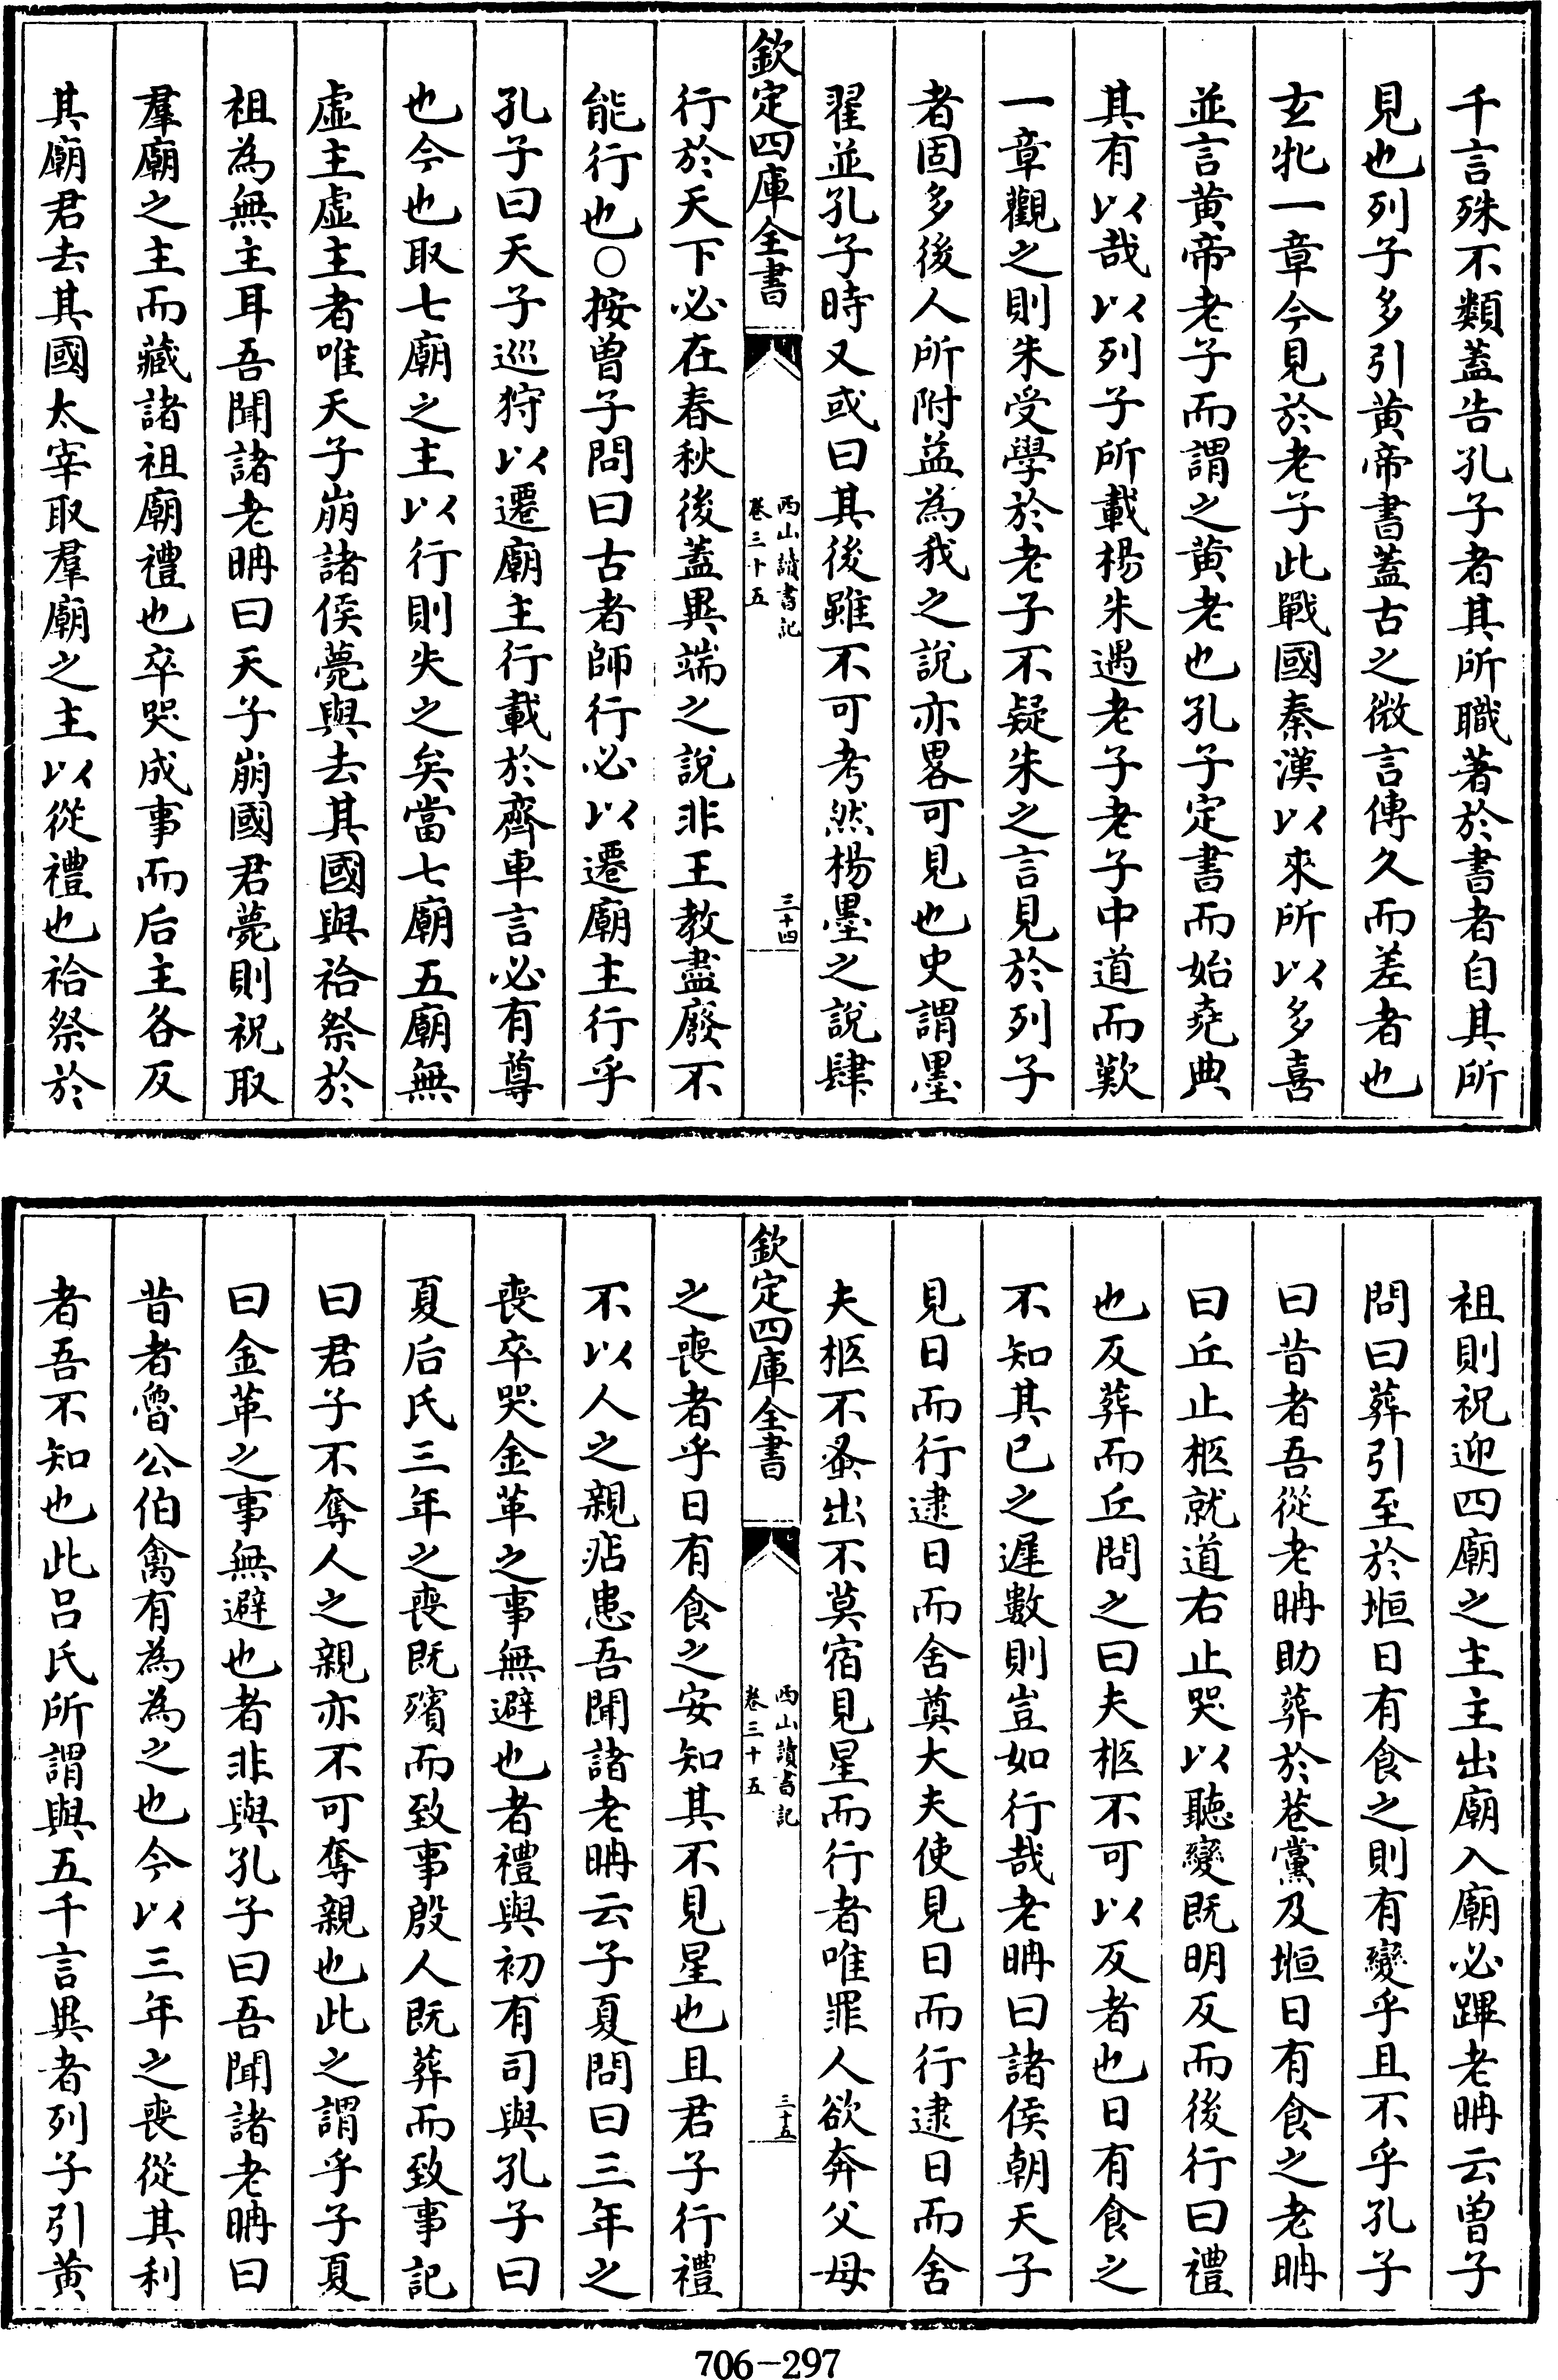 千言殊不類蓋告孔子者其所職著於書者自其所
見也列子多引黄帝書蓋古之微言傳久而差者也
玄牝一章今見於老子此戰國秦漢以來所以多喜
並言黄帝老子而謂之黄老也孔子定書而始堯典
其有以哉以列子所載楊朱遇老子老子中道而歎
一章觀之則朱受學於老子不疑朱之言見於列子
者固多後人所附益為我之說亦畧可見也史謂墨
翟並孔子時又或曰其後雖不可考然楊墨之說肆
欽定四庫全書
西山讀書記
卷三十五
三十四
行於天下必在春秋後蓋異端之說非王教盡廢不
能行也○按曾子問曰古者師行必以遷廟主行乎
孔子曰天子巡狩以遷廟主行載於齊車言必有尊
也今也取七廟之主以行則失之矣當七廟五廟無
虛主虛主者唯天子崩諸侯薨與去其國與祫祭於
祖為無主耳吾聞諸老聃曰天子崩國君薨則祝取
羣廟之主而藏諸祖廟禮也卒哭成事而后主各反
其廟君去其國太宰取羣廟之主以從禮也祫祭於
祖則祝迎四廟之主主出廟入廟必蹕老聃云曾子
問曰葬引至於堩日有食之則有變乎且不乎孔子
曰昔者吾從老聃助葬於巷黨及堩日有食之老聃
曰丘止柩就道右止哭以聽變既明反而後行曰禮
也反葬而丘問之曰夫柩不可以反者也日有食之
不知其已之遲數則豈如行哉老聃曰諸侯朝天子
見日而行逮日而舍奠大夫使見日而行逮日而舍
夫柩不蚤出不莫宿見星而行者唯罪人欲奔父母
欽定四庫全書
西山讀書記
卷三十五
三十五
之喪者乎日有食之安知其不見星也且君子行禮
不以人之親痁患吾聞諸老聃云子夏問曰三年之
喪卒哭金革之事無避也者禮與初有司與孔子曰
夏后氏三年之喪既殯而致事殷人既葬而致事記
曰君子不奪人之親亦不可奪親也此之謂乎子夏
曰金革之事無避也者非與孔子曰吾聞諸老聃曰
昔者魯公伯禽有為為之也今以三年之喪從其利
者吾不知也此吕氏所謂與五千言異者列子引黄
706-297